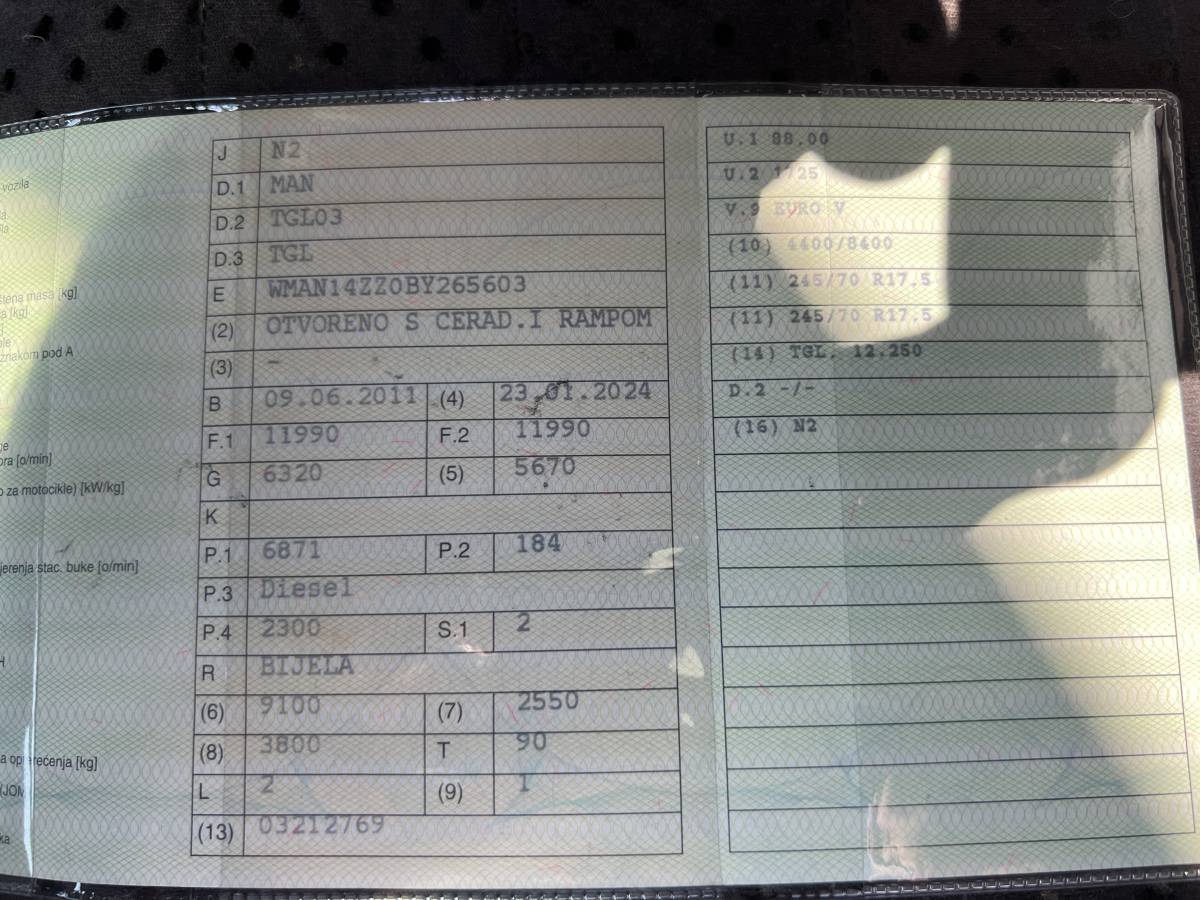 vozila
štena masa [kg]
a [kg]
znakom pod A
ora [o/min]
o za motocikle) [kW/kg]
jerenja stac. buke [o/min]
[kg]
J N2
D.1 MAN
D.2 TGL03
D.3 TGL
E WMAN14ZZ0BY265603
(2) OTVORENO S CERAD.I RAMPOM
(3) –
B 09.06.2011 (4) 23.01.2024
F.1 11990 F.2 11990
G 6320 (5) 5670
K
P.1 6871 P.2 184
P.3 Diesel
P.4 2300 S.1 2
R BIJELA
(6) 9100 (7) 2550
(8) 3800 T 90
L 2 (9) 1
(13) 03212769
U.1 88.00
U.2 1725
V.9 EURO V
(10) 4400/8400
(11) 245/70 R17.5
(11) 245/70 R17.5
(14) TGL. 12.250
D.2 -/-
(16) N2